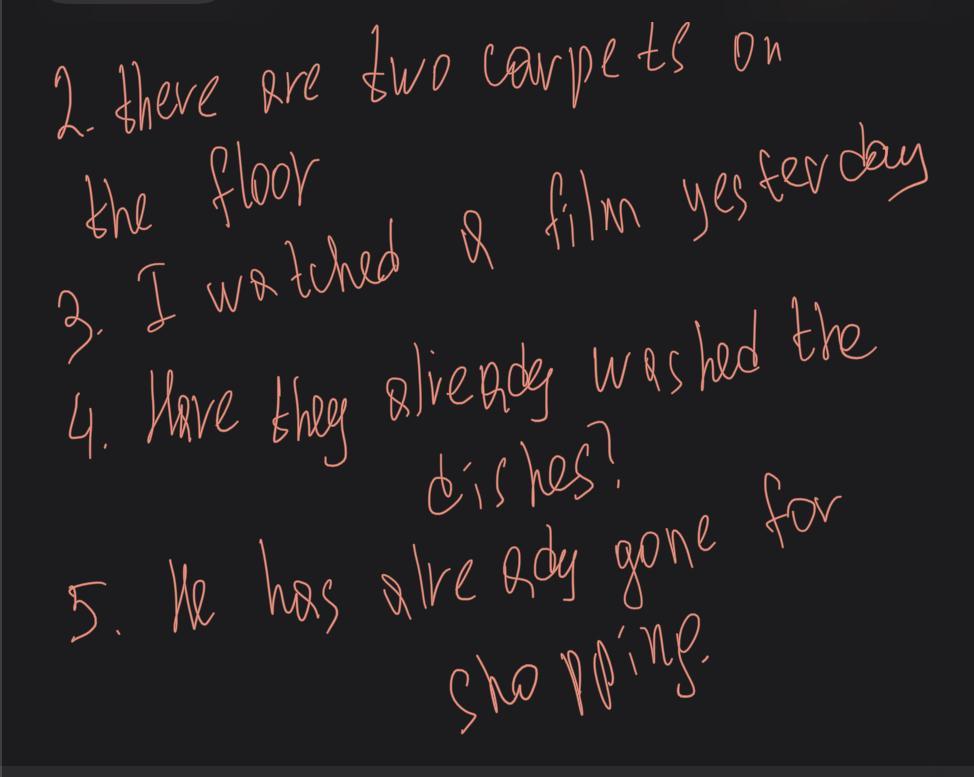 2. there are two carpets on
the floor
3. I watched a film yesterday
4. Have they already washed the
dishes?
5. He has already gone for
shopping.